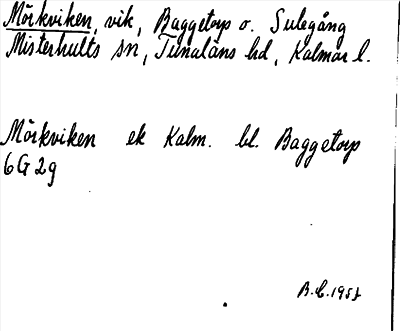 Mörkviken, vik, Baggetorp o. Sulegång
Misterhults sn, Tunaläns hd, Kalmar l.
Mörkviken ek Kalm. bl. Baggetorp
6G 2g